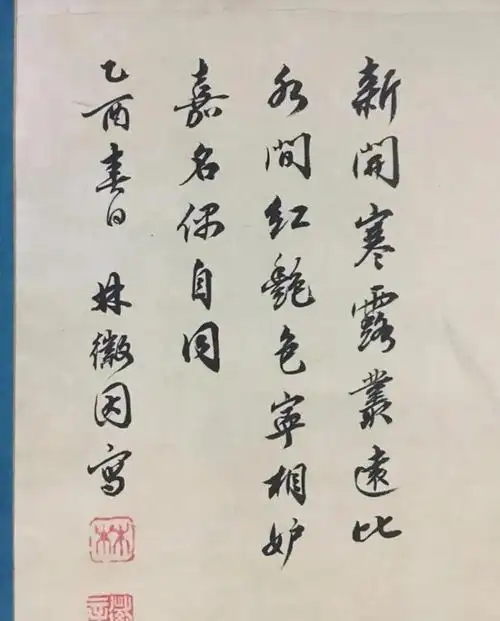 新開寒露叢遠比
水間紅艷色寧相妒
嘉名偶自同
乙酉春日 林徽因寫
林